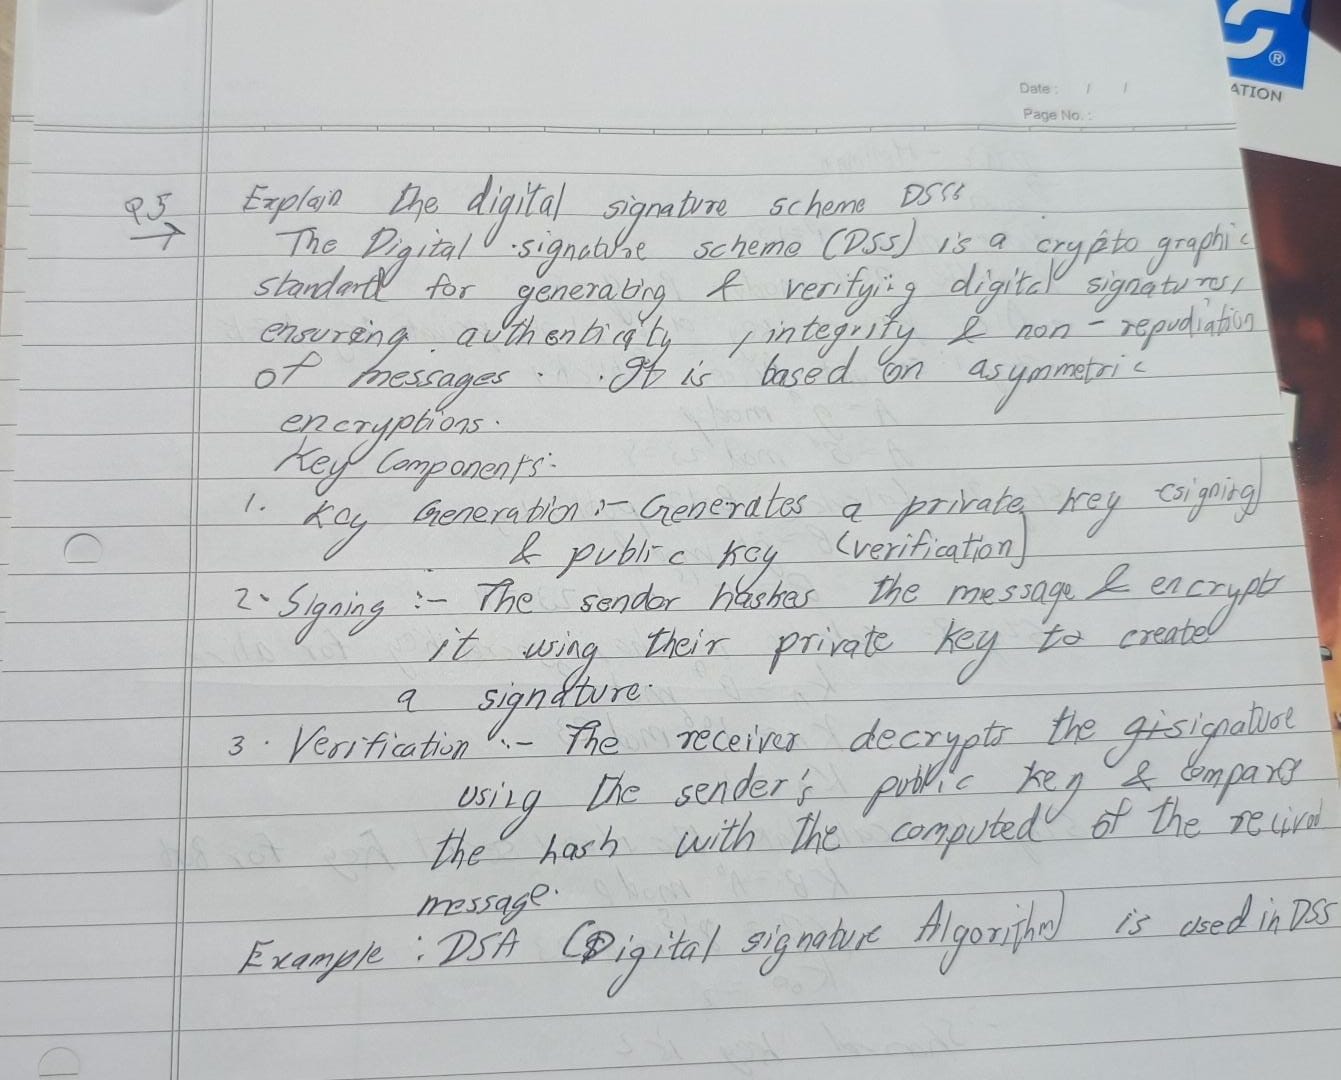 ATION
Date : / /
Page No. :
Q5 Explain the digital signature scheme DSSs
The Digital signature scheme (DSS) is a crypto graphic
standard for generating & verifying digital signatures,
ensureing authenticity , integrity & non - repudiation
of messages. It is based on asymmetric
encryptions.
Key Components:-
1. Key Generation :- Generates a private key (signing)
& public key (verification)
2. Signing :- The sender hashes the message & encrypts
it using their private key to create
a signature.
3. Verification :- The receiver decrypts the signature
using the sender's public key & compares
the hash with the computed of the recived
message.
Example : DSA (Digital signature Algorithm) is used in DSS